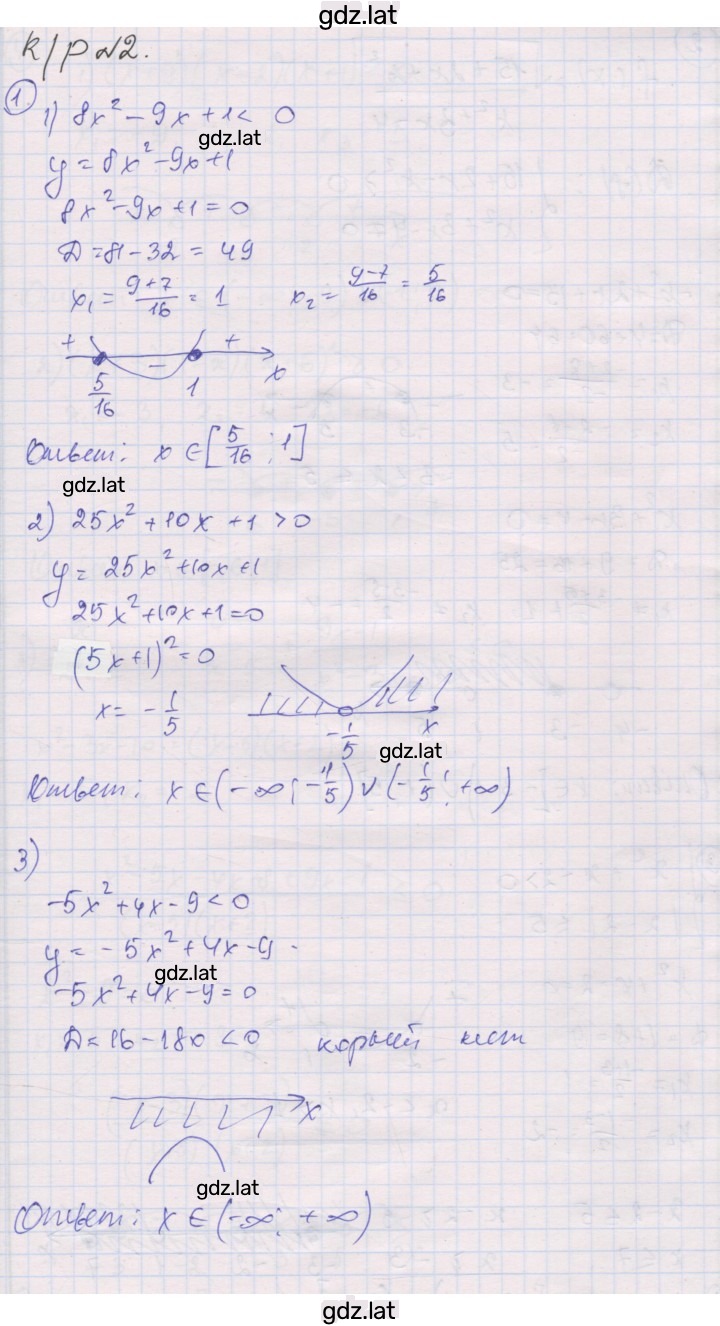 gdz.lat
К/Р №2.
1
1) 8x² - 9x + 1 < 0
gdz.lat
y = 8x² - 9x + 1
8x² - 9x + 1 = 0
Д = 81 - 32 = 49
x₁ = (9+7)/16 = 1 x₂ = (9-7)/16 = 5/16
+ - +
5/16 1 x
Ответ: x ∈ [5/16 ; 1]
gdz.lat
2) 25x² + 10x + 1 > 0
y = 25x² + 10x + 1
25x² + 10x + 1 = 0
(5x + 1)² = 0
x = - 1/5
- 1/5 x
gdz.lat
Ответ: x ∈ (-∞; -1/5) ∪ (-1/5; +∞)
3)
-5x² + 4x - 9 < 0
y = -5x² + 4x - 9
gdz.lat
-5x² + 4x - 9 = 0
Д = 16 - 180 < 0 корней нет
x
gdz.lat
Ответ: x ∈ (-∞; +∞)
gdz.lat